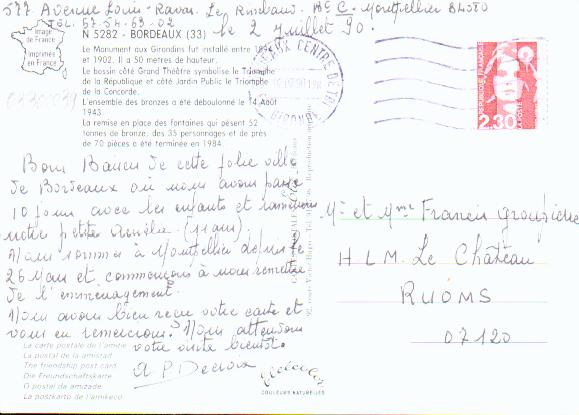 577 Avenue Louis-Ravas. Le Rimbaud. Bt C - Montpellier 34080
TEL. 67-54-69-02
le 2 Juillet 90.
Image de France
Imprimée en France
N 5282 - BORDEAUX (33)
Le Monument aux Girondins fut installé entre 1894
et 1902. Il a 50 mètres de hauteur.
Le bassin côté Grand Théâtre symbolise le Triomphe
de la République et côté Jardin Public le Triomphe
de la Concorde.
L'ensemble des bronzes a été déboulonné le 14 Août
1943.
La remise en place des fontaines qui pèsent 52
tonnes de bronze, des 35 personnages et de près
de 70 pièces a été terminée en 1984.
01300039
BORDEAUX CENTRE DE TRI
GIRONDE
REPUBLIQUE FRANÇAISE
2,30
LA POSTE
Bons Baisers de cette jolie ville
de Bordeaux où nous avons passé
10 jours avec les enfants et ramenons
notre petite Aurélie (11 ans).
Nous sommes à Montpellier depuis le
26 Mai et commençons à nous remettre
de l'emménagement.
Nous avons bien reçu votre carte et
vous en remercions. Nous attendons
votre visite bientôt.
A P. Decroix
Mr et Mme Francis
HLM. Le Château
RUOMS
07120
La carte postale de l'amitié
La postal de la amistad
The friendship post card
Die Freundschaftskarte
O postal da amizade
La postkarto de l'amikeco
COULEURS NATURELLES